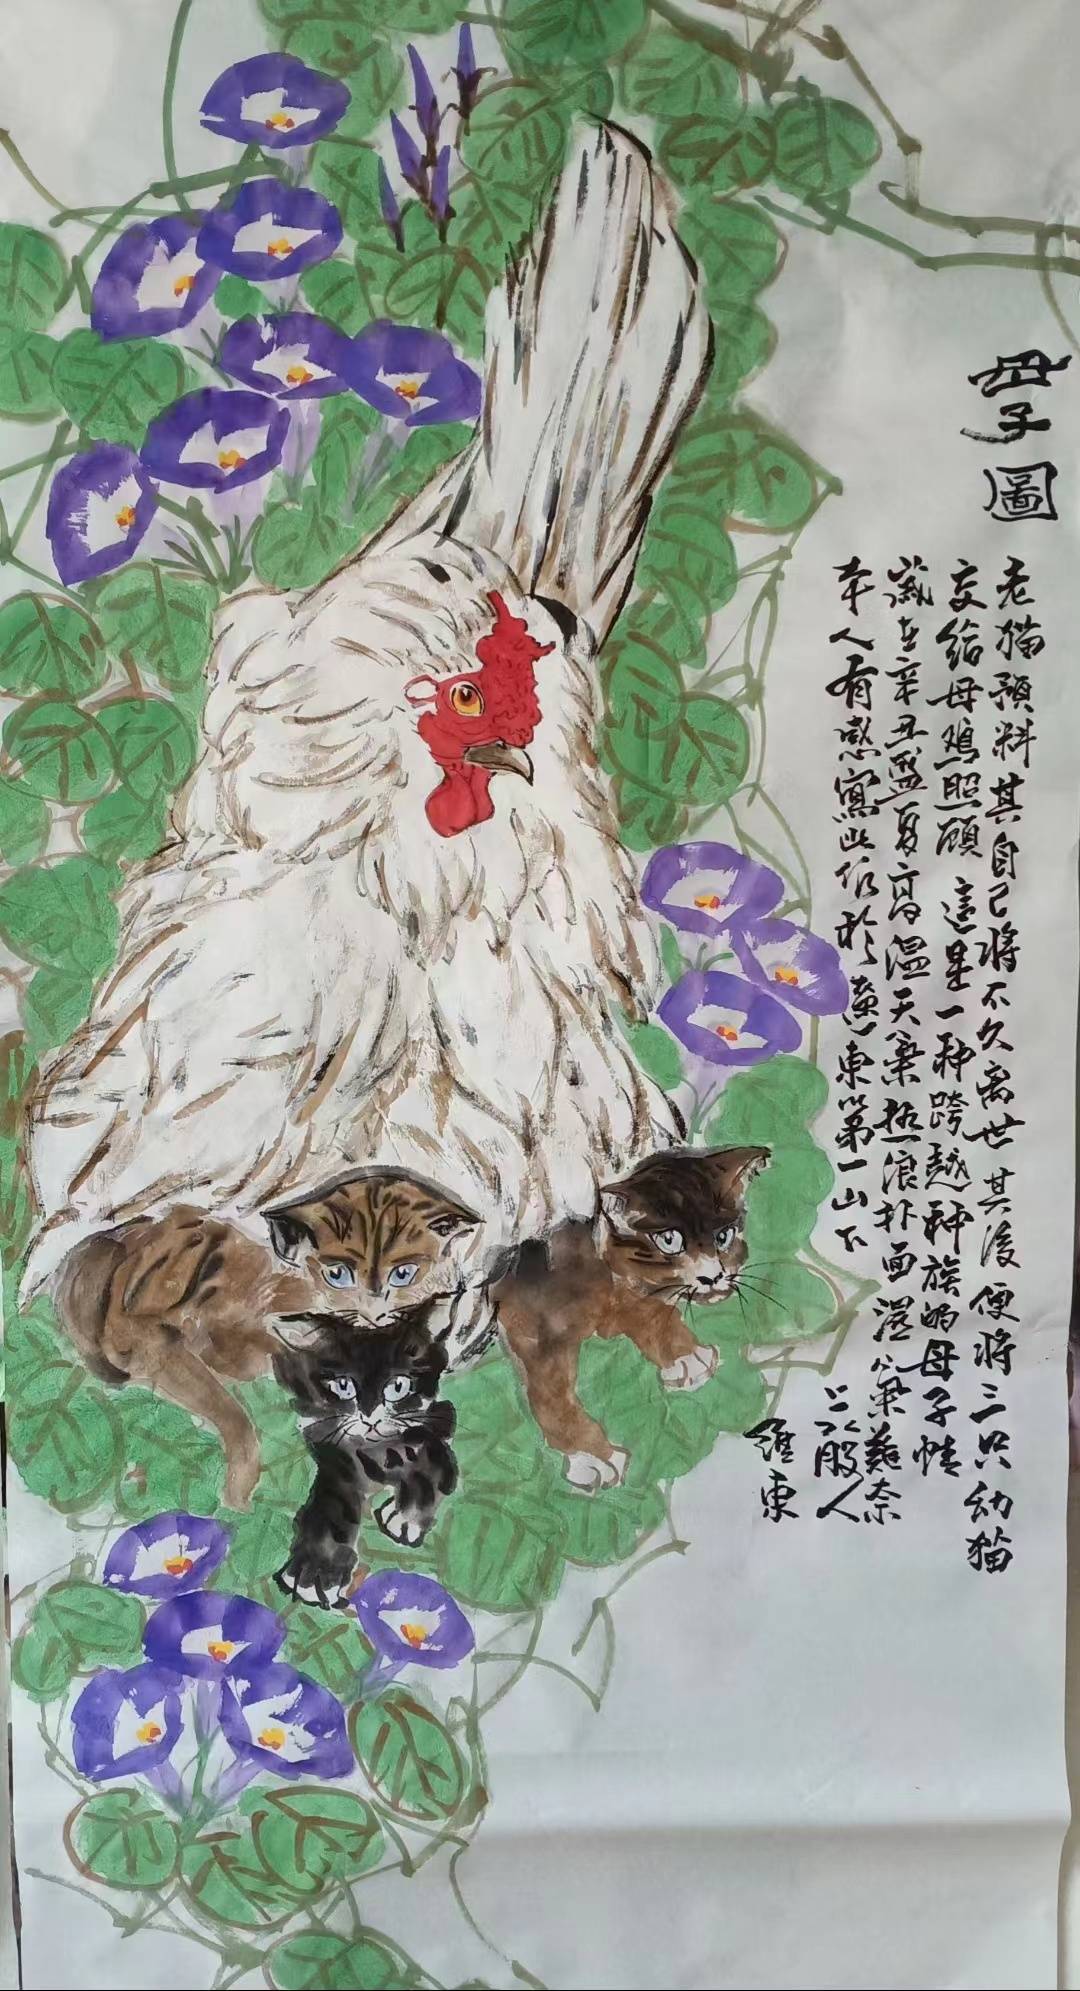 母子圖
老猫預料其自己將不久离世其後便將三只幼猫
交给母鸡照顾這是一种跨越种族的母子情
歲在辛丑盛夏高温天气热浪扑面湿氣難奈
本人有感寫此作於 東第一山下
人
維東